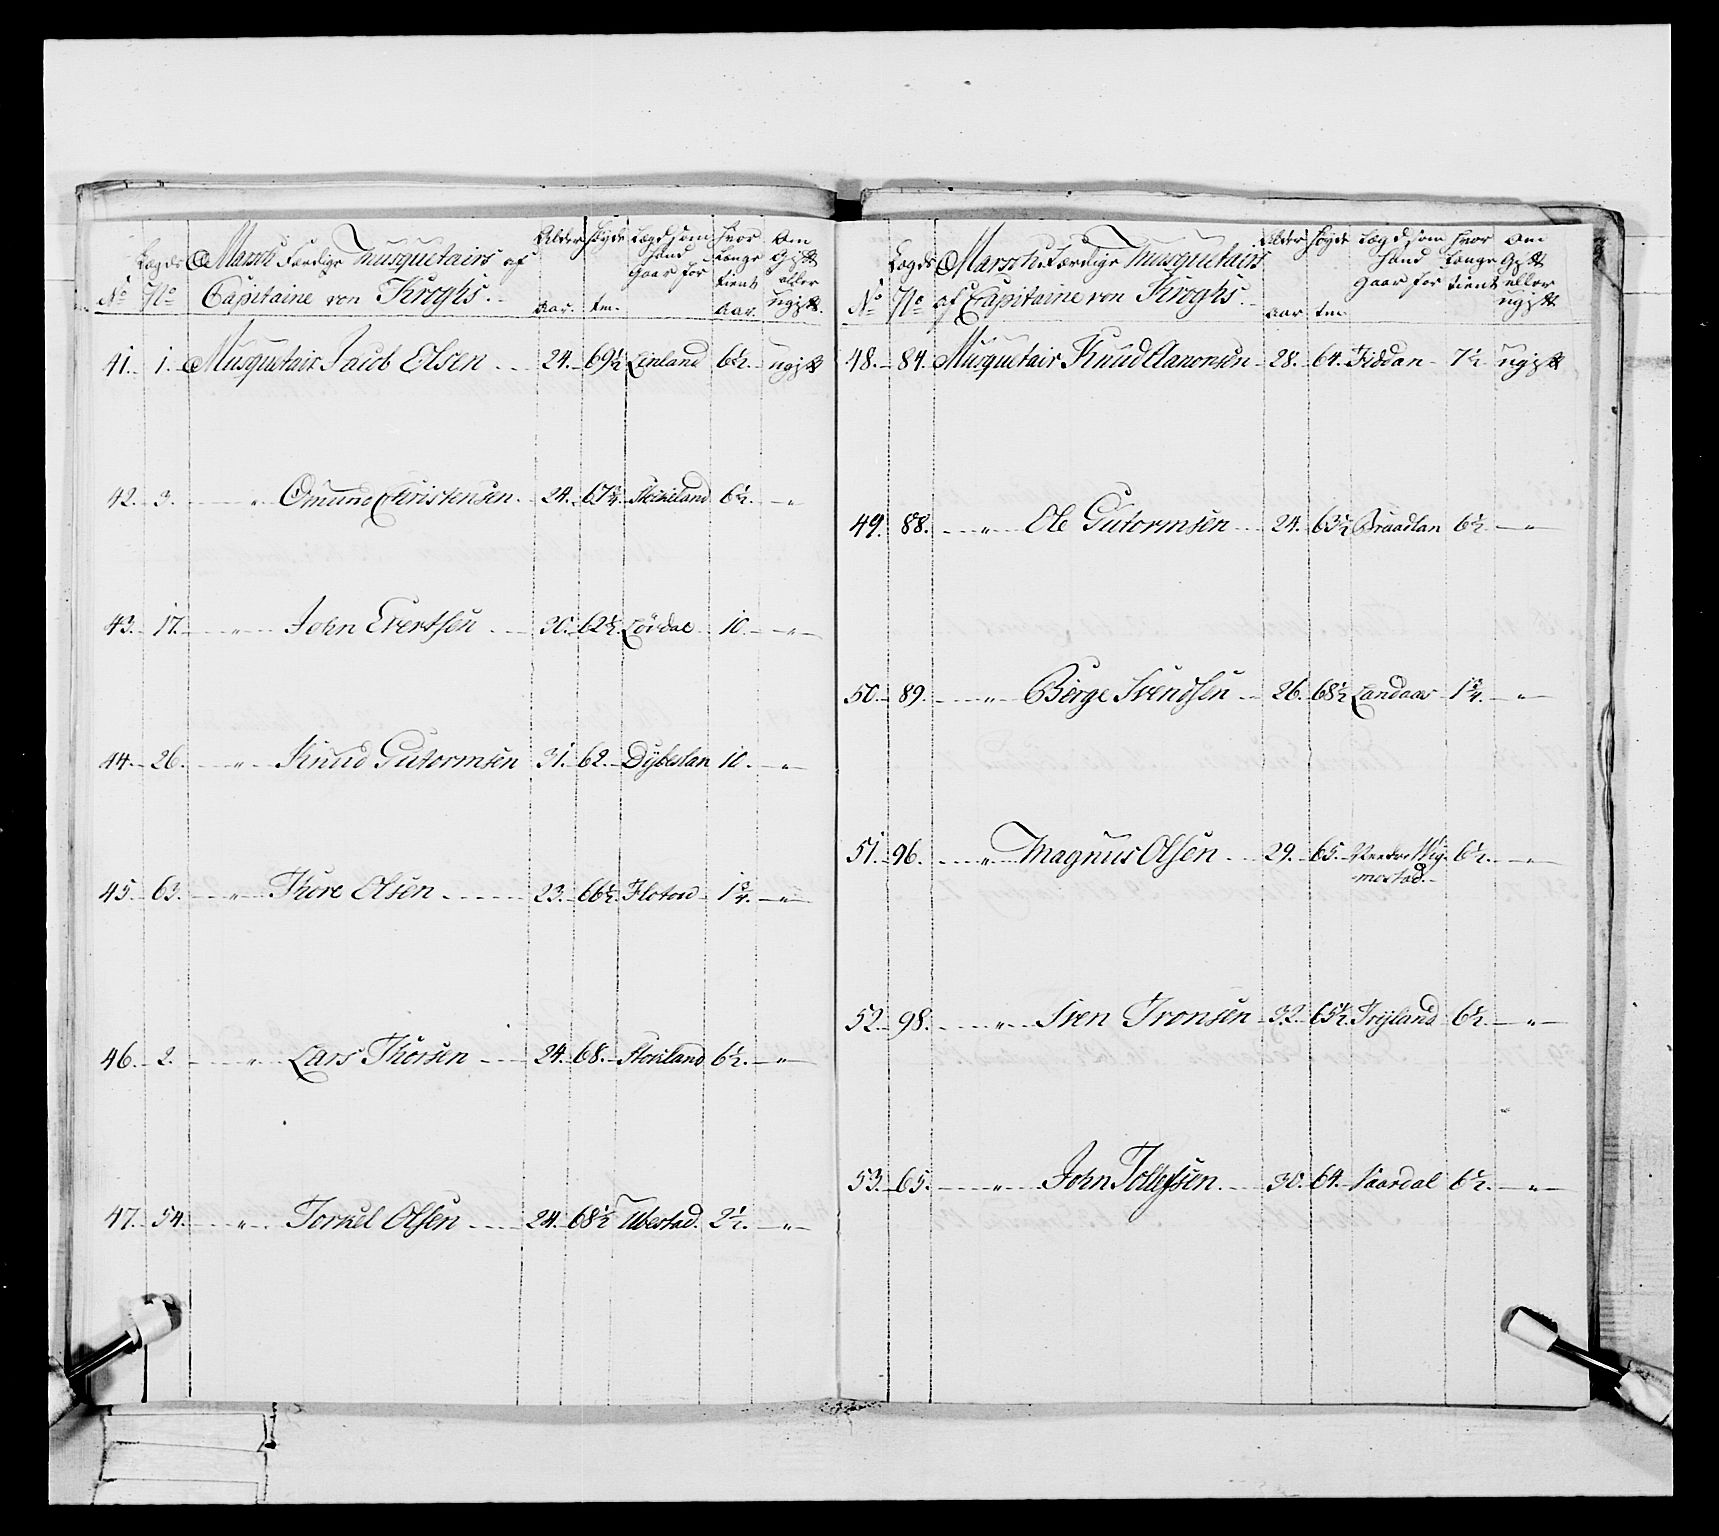 No Lægds No Marsch Færdige Musquetairs af Capitaine von Kroghs. Alder Aar. Høyde tm. Lægd som Hand Gaar for Hvor Længe tient Aar. Om Gift eller ugift.
41. 1. Musquetair Jacob Olsen 24. 69½ Linland 6½. ugift
42. 3. " Omund Christensen. 24. 67¾. Skiekeland 6½. "
43. 17. " John Evertsen 30. 62½. Lövdal 10. "
44. 26. " Knud Gutormsen 31. 62. Dybeslan 10. "
45. 63. " Thore Olsen 23. 66½. Flotow 1¾. "
46. 2. " Lars Thorsen 24. 68. Stoeland 6½. "
47. 54. " Torkel Olsen 24. 68½ Ubestad. 2½. "
No Lægds No Marsch Færdige Musquetairs af Capitaine von Kroghs. Alder Aar Høyde tm. Lægd som Hand Gaar for Hvor Længe tient Om Gift eller ugift
48. 84. Musquetair Knud Aanonsen 28. 64. Fiddan 7½ ugift
49. 88. " Ole Gutormsen 24. 63½ Braadlan 6½. "
50. 89. " Börge Svendsen 26. 68½ Landaas 1¾. "
51. 96. " Magnus Olsen 29. 65. Needre Wig-
mostad. 6½. "
52. 98. " Sven Tronsen 32. 65½ Frijland 6½. "
53. 65. " John Tollefsen. 30. 64. Vaardal 6½. "